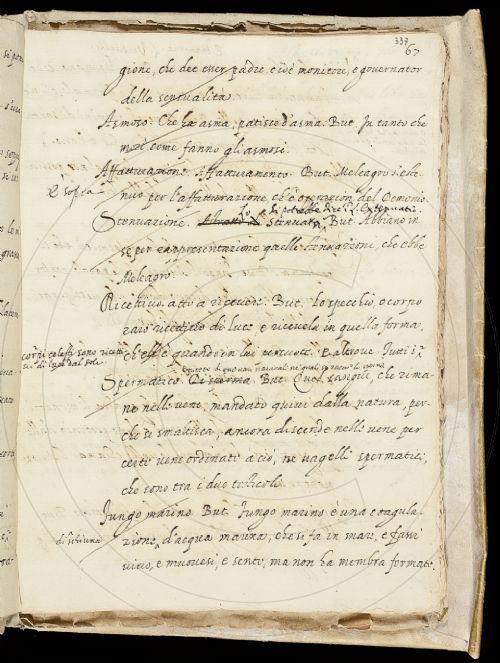 337
67
gione, che dee esser padre, e cioè monitore, e governator
della sensualità.
Asmoso. Che ha asma, patisce d'asma. But. In tanto che
morì come fanno gli asmosi.
Affatturazione. Affatturamento. But. Meleagro s'este-
È sopra
nuò per l'affatturazione, ch'è operazion del Demonio
si potrebbe dire Extenuatio.
Stenuazione. Stenuata, But. Abbiano in
sè per rappresentazione quelle stenuazioni, che ebbe
Meleagro.
Ricettivo. atto a ricevere. But. Lo specchio, o corpo
raro ricettivo di luce, e ricevela in quella forma,
corpi celesti sono ricetti-
vi di luce dal Sole.
ch'ell'è quando in lui percuote. E altrove. Tutti i
Spermatico. Di sperma. But. Quel sangue, che rima-
ne nelle vene, mandato quivi dalla natura, per-
chè si smaltisca, ancora discende nelle vene per
certi vene ordinati a ciò, ne vagelli spermatici,
che sono tra i due testicoli.
Fungo marino. But. Fungo marino è una coagula-
di schiuma
zione d'acqua marina, che si fa in mare, e fassi
vivo, e muovesi, e sente, ma non ha membra formate